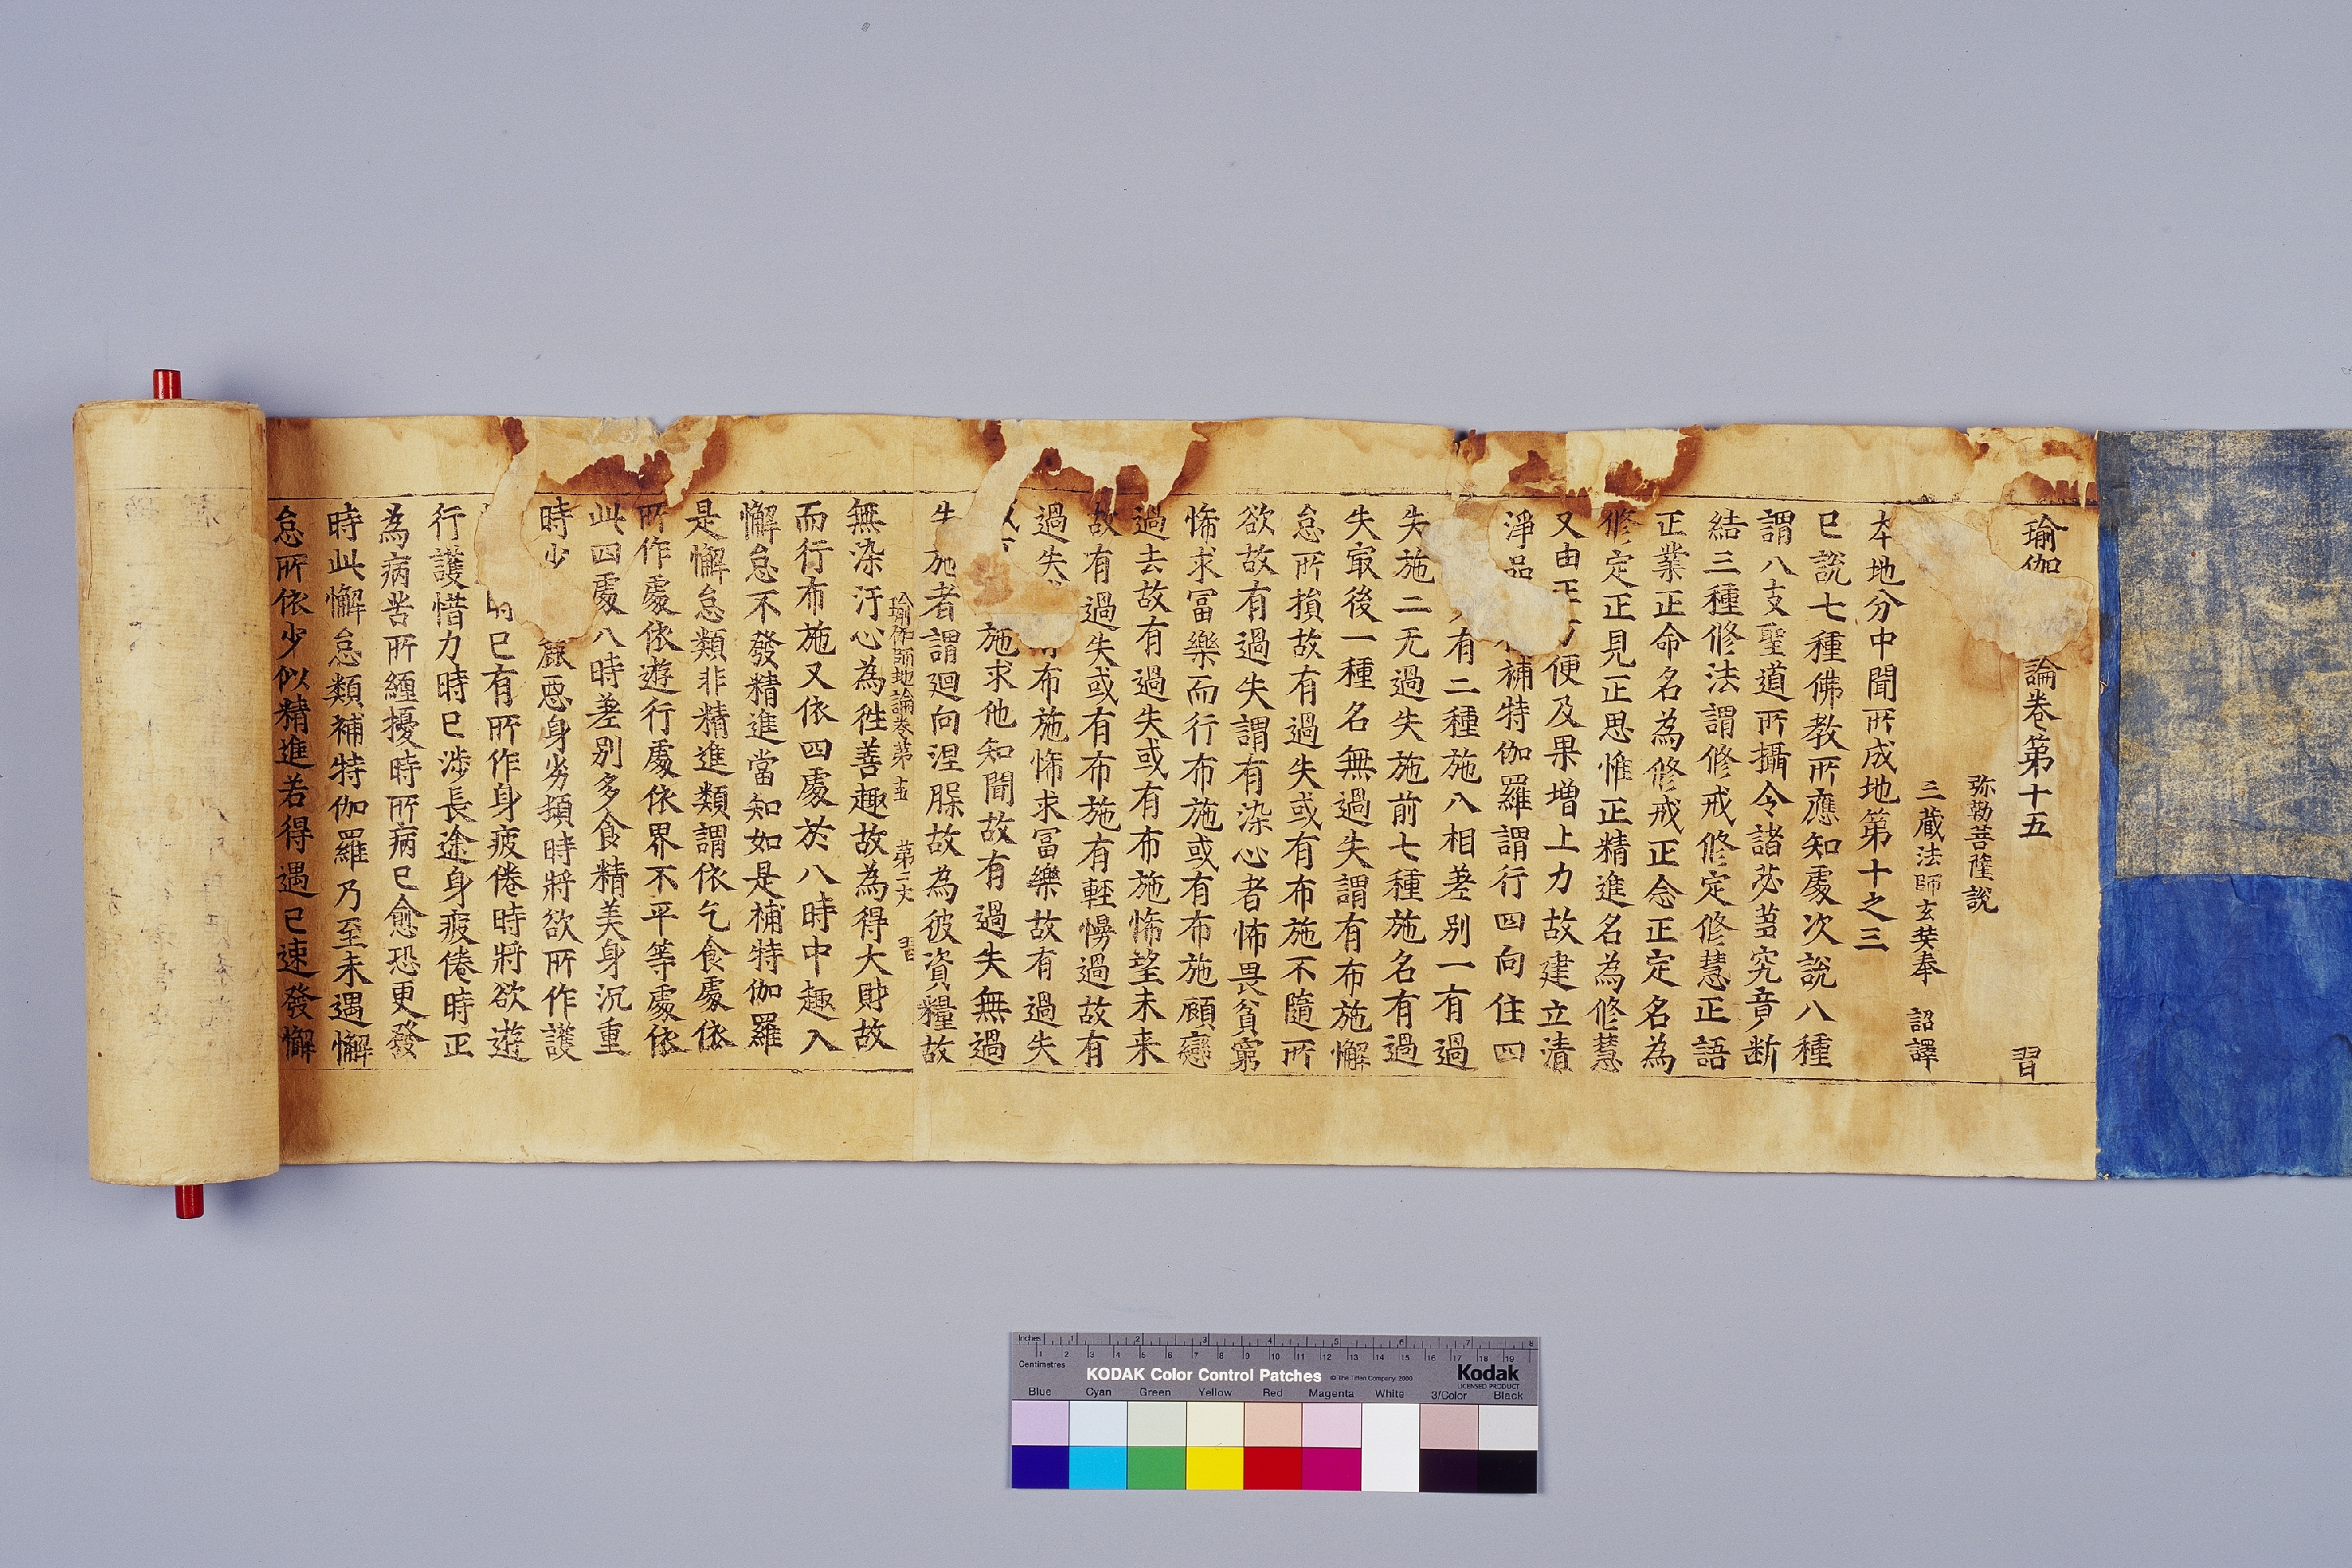 瑜伽 論卷第十五 習
弥勒菩薩說
三藏法師玄奘奉 詔譯
本地分中聞所成地第十之三
已說七種佛教所應知處次說八種
謂八支聖道所攝令諸苾蒭究竟斷
結三種修法謂修戒修定修慧正語
正業正命名為修戒正念正定名為
修定正見正思惟正精進名為修慧
又由正方便及果增上力故建立清
淨品 補特伽羅謂行四向住四
有二種施八相差別一有過
失施二无過失施前七種施名有過
失㝡後一種名無過失謂有布施懈
怠所損故有過失或有布施不隨所
欲故有過失謂有染心者怖畏貧窮
悕求冨樂而行布施或有布施顧戀
過去故有過失或有布施悕望未来
故有過失或有布施有輕慢過故有
過失 布施悕求冨樂故有過失
施求他知聞故有過失無過
失施者謂迴向涅槃故為彼資糧故
瑜伽師地論卷第十五 第二丈 習
無染汙心為徃善趣故為得大財故
而行布施又依四處於八時中趣入
懈怠不發精進當知如是補特伽羅
是懈怠類非精進類謂依乞食處依
所作處依遊行處依界不平等處依
此四處八時差別多食精美身沉重
時少 麁惡身劣頓時將欲所作護
已有所作身疲倦時將欲遊
行護惜力時已涉長途身疲倦時正
為病苦所纏擾時所病已愈恐更發
時此懈怠類補特伽羅乃至未遇懈
怠所依少似精進若得遇已速發懈
Inches 1 2 3 4 5 6 7 8
Centimetres 1 2 3 4 5 6 7 8 9 10 11 12 13 14 15 16 17 18 19
KODAK Color Control Patches © The Tiffen Company, 2000 Kodak
LICENSED PRODUCT
Blue Cyan Green Yellow Red Magenta White 3/Color Black